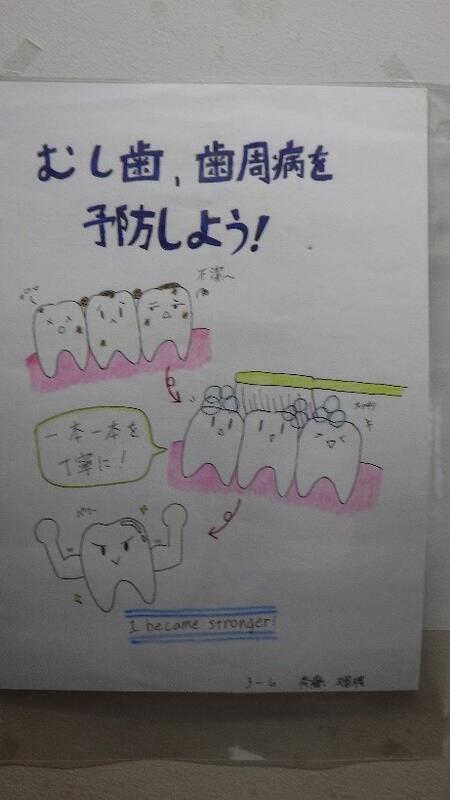 むし歯、歯周病を
予防しよう!
不潔〜
一本一本を
丁寧に!
I became stronger!
3-6